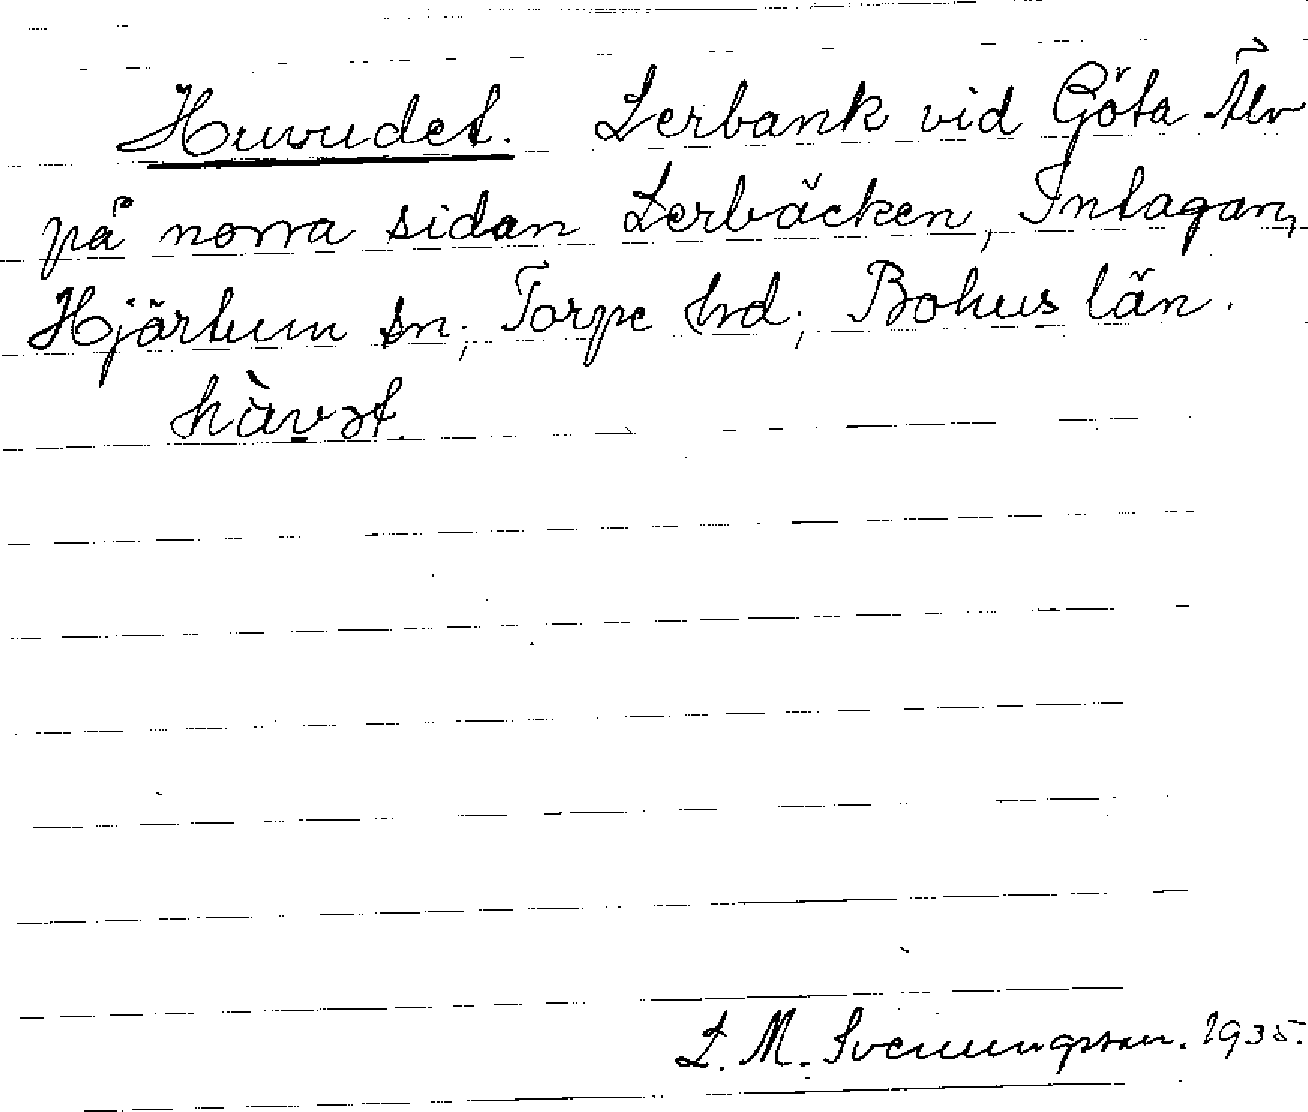 Huvudet. Lerbank vid Göta Älv
på norra sidan Lerbäcken, Intagan,
Hjärtum sn; Torpe hrd; Bohus län.
hàvət.
L. M. Svenungsson. 1935.